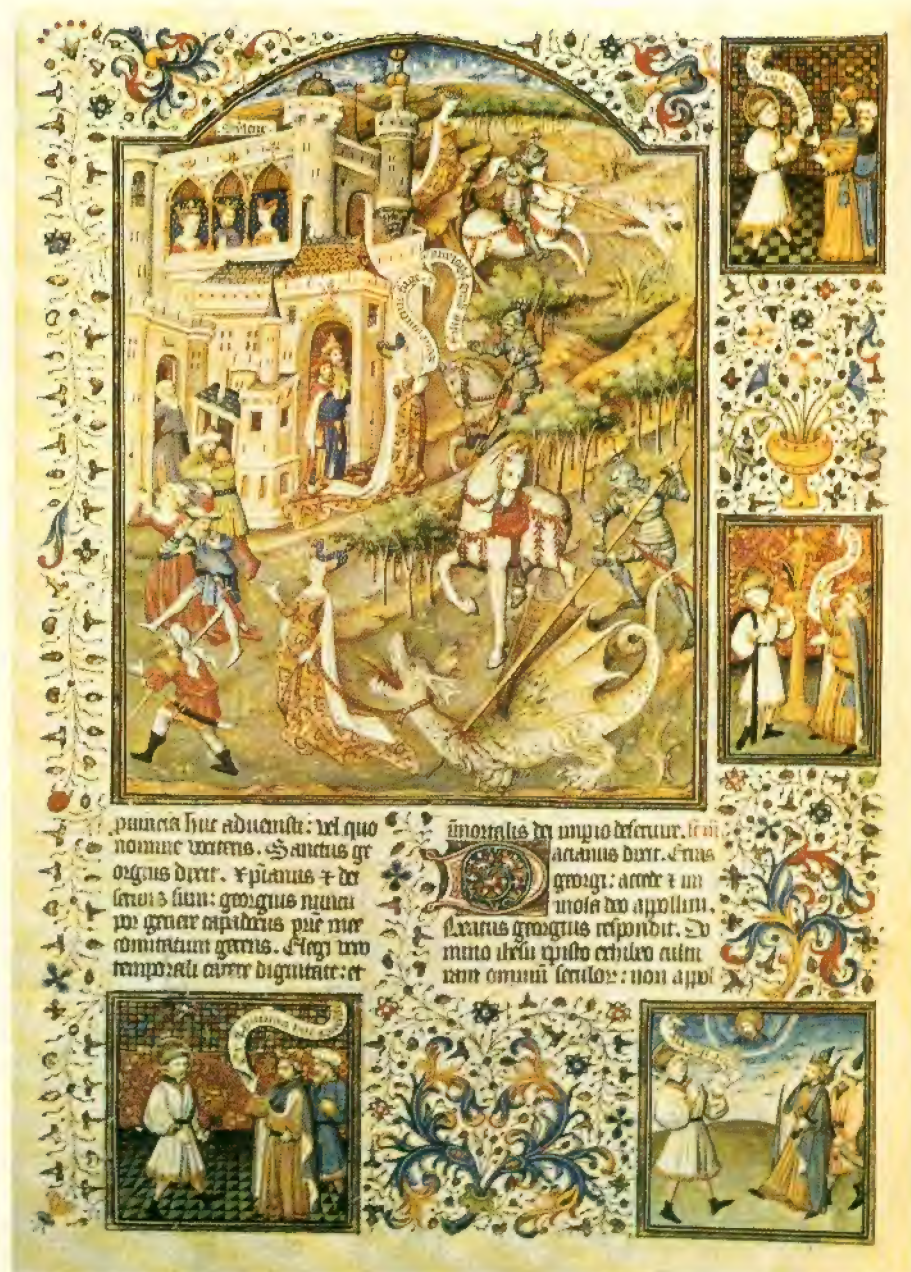 puincia huc aduenisti: vel quo
nomine vocteris. Sanctus ge
orgius dixit. xpianus ⁊ dei
seruus sum: georgius nuncu
por genere capadocus prie mee
comitatum gerens. Elegi uero
temporali carere dignitate: et
īmortalis dei impio deseruire.
D acianus dixit. Erras
georgi: accede ⁊ im
mola deo appollini.
Beatus georgius respondit. Do
mino ihesu xpisto exhibeo cultu
ram omniū seculoꝝ: non appol